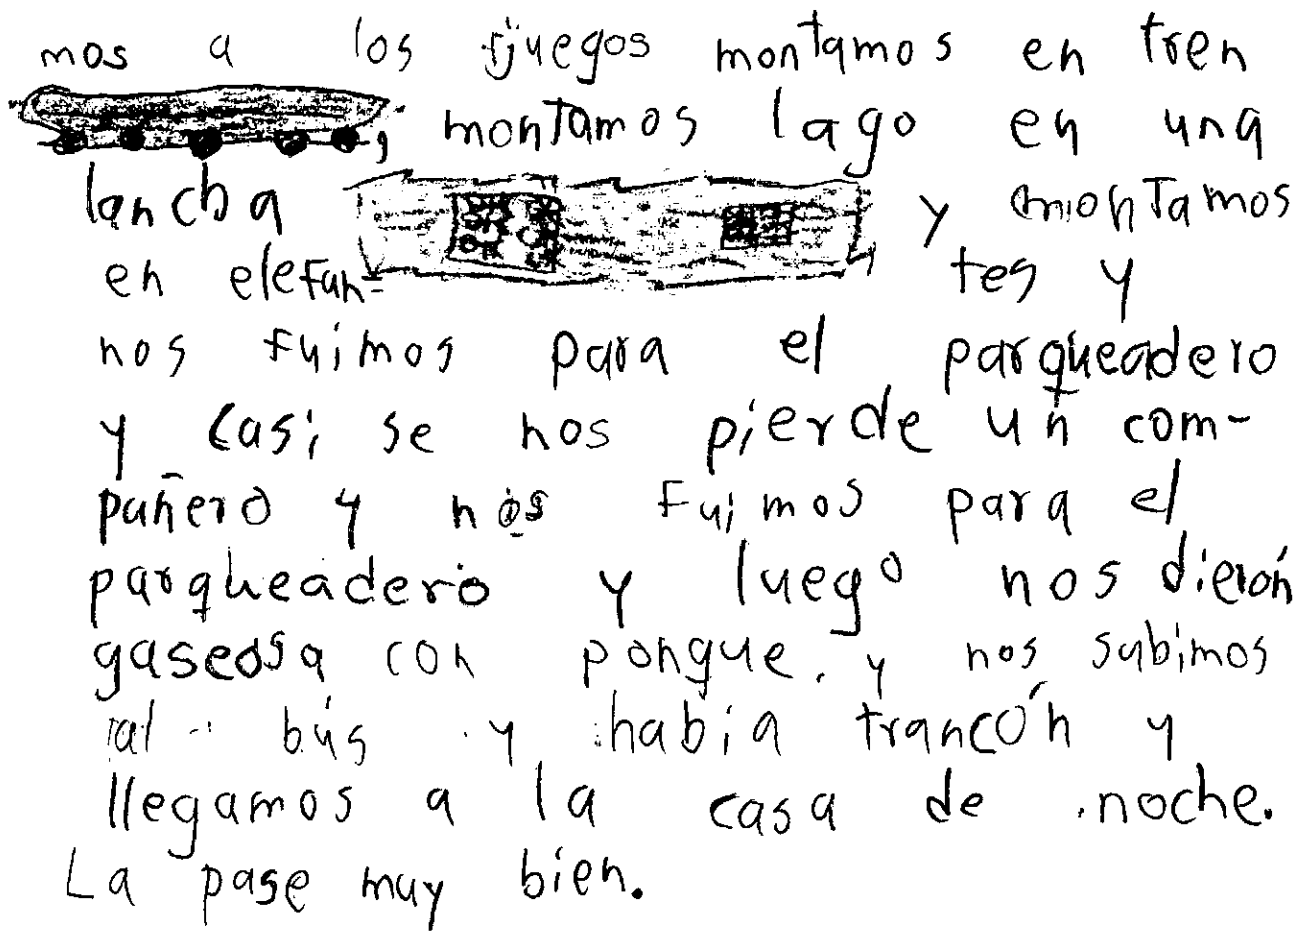 mos a los juegos montamos en tren
, montamos lago en una
lancha y montamos
en elefan= tes y
nos fuimos para el parqueadero
y casi se nos pierde un com-
pañero y nos fuimos para el
parqueadero y luego nos dierón
gaseosa con pongue. y nos subimos
al bús y había trancón y
llegamos a la casa de noche.
La pase muy bien.